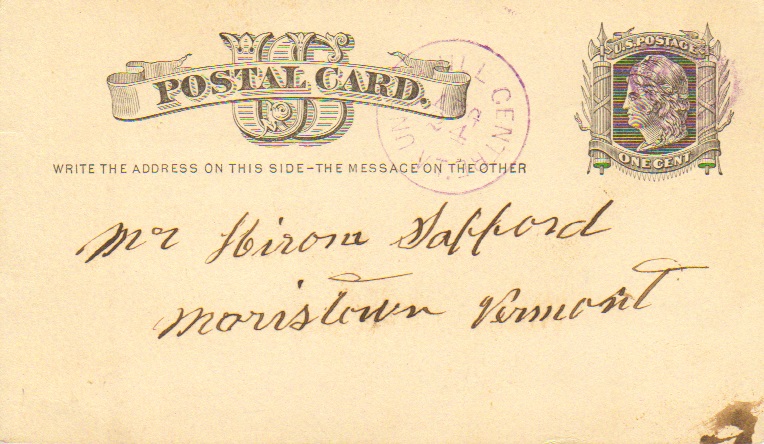 U.S. POSTAGE
US
POSTAL CARD.
ONE CENT
WRITE THE ADDRESS ON THIS SIDE–THE MESSAGE ON THE OTHER
Mr Hirom Safford
Moristown Vermont